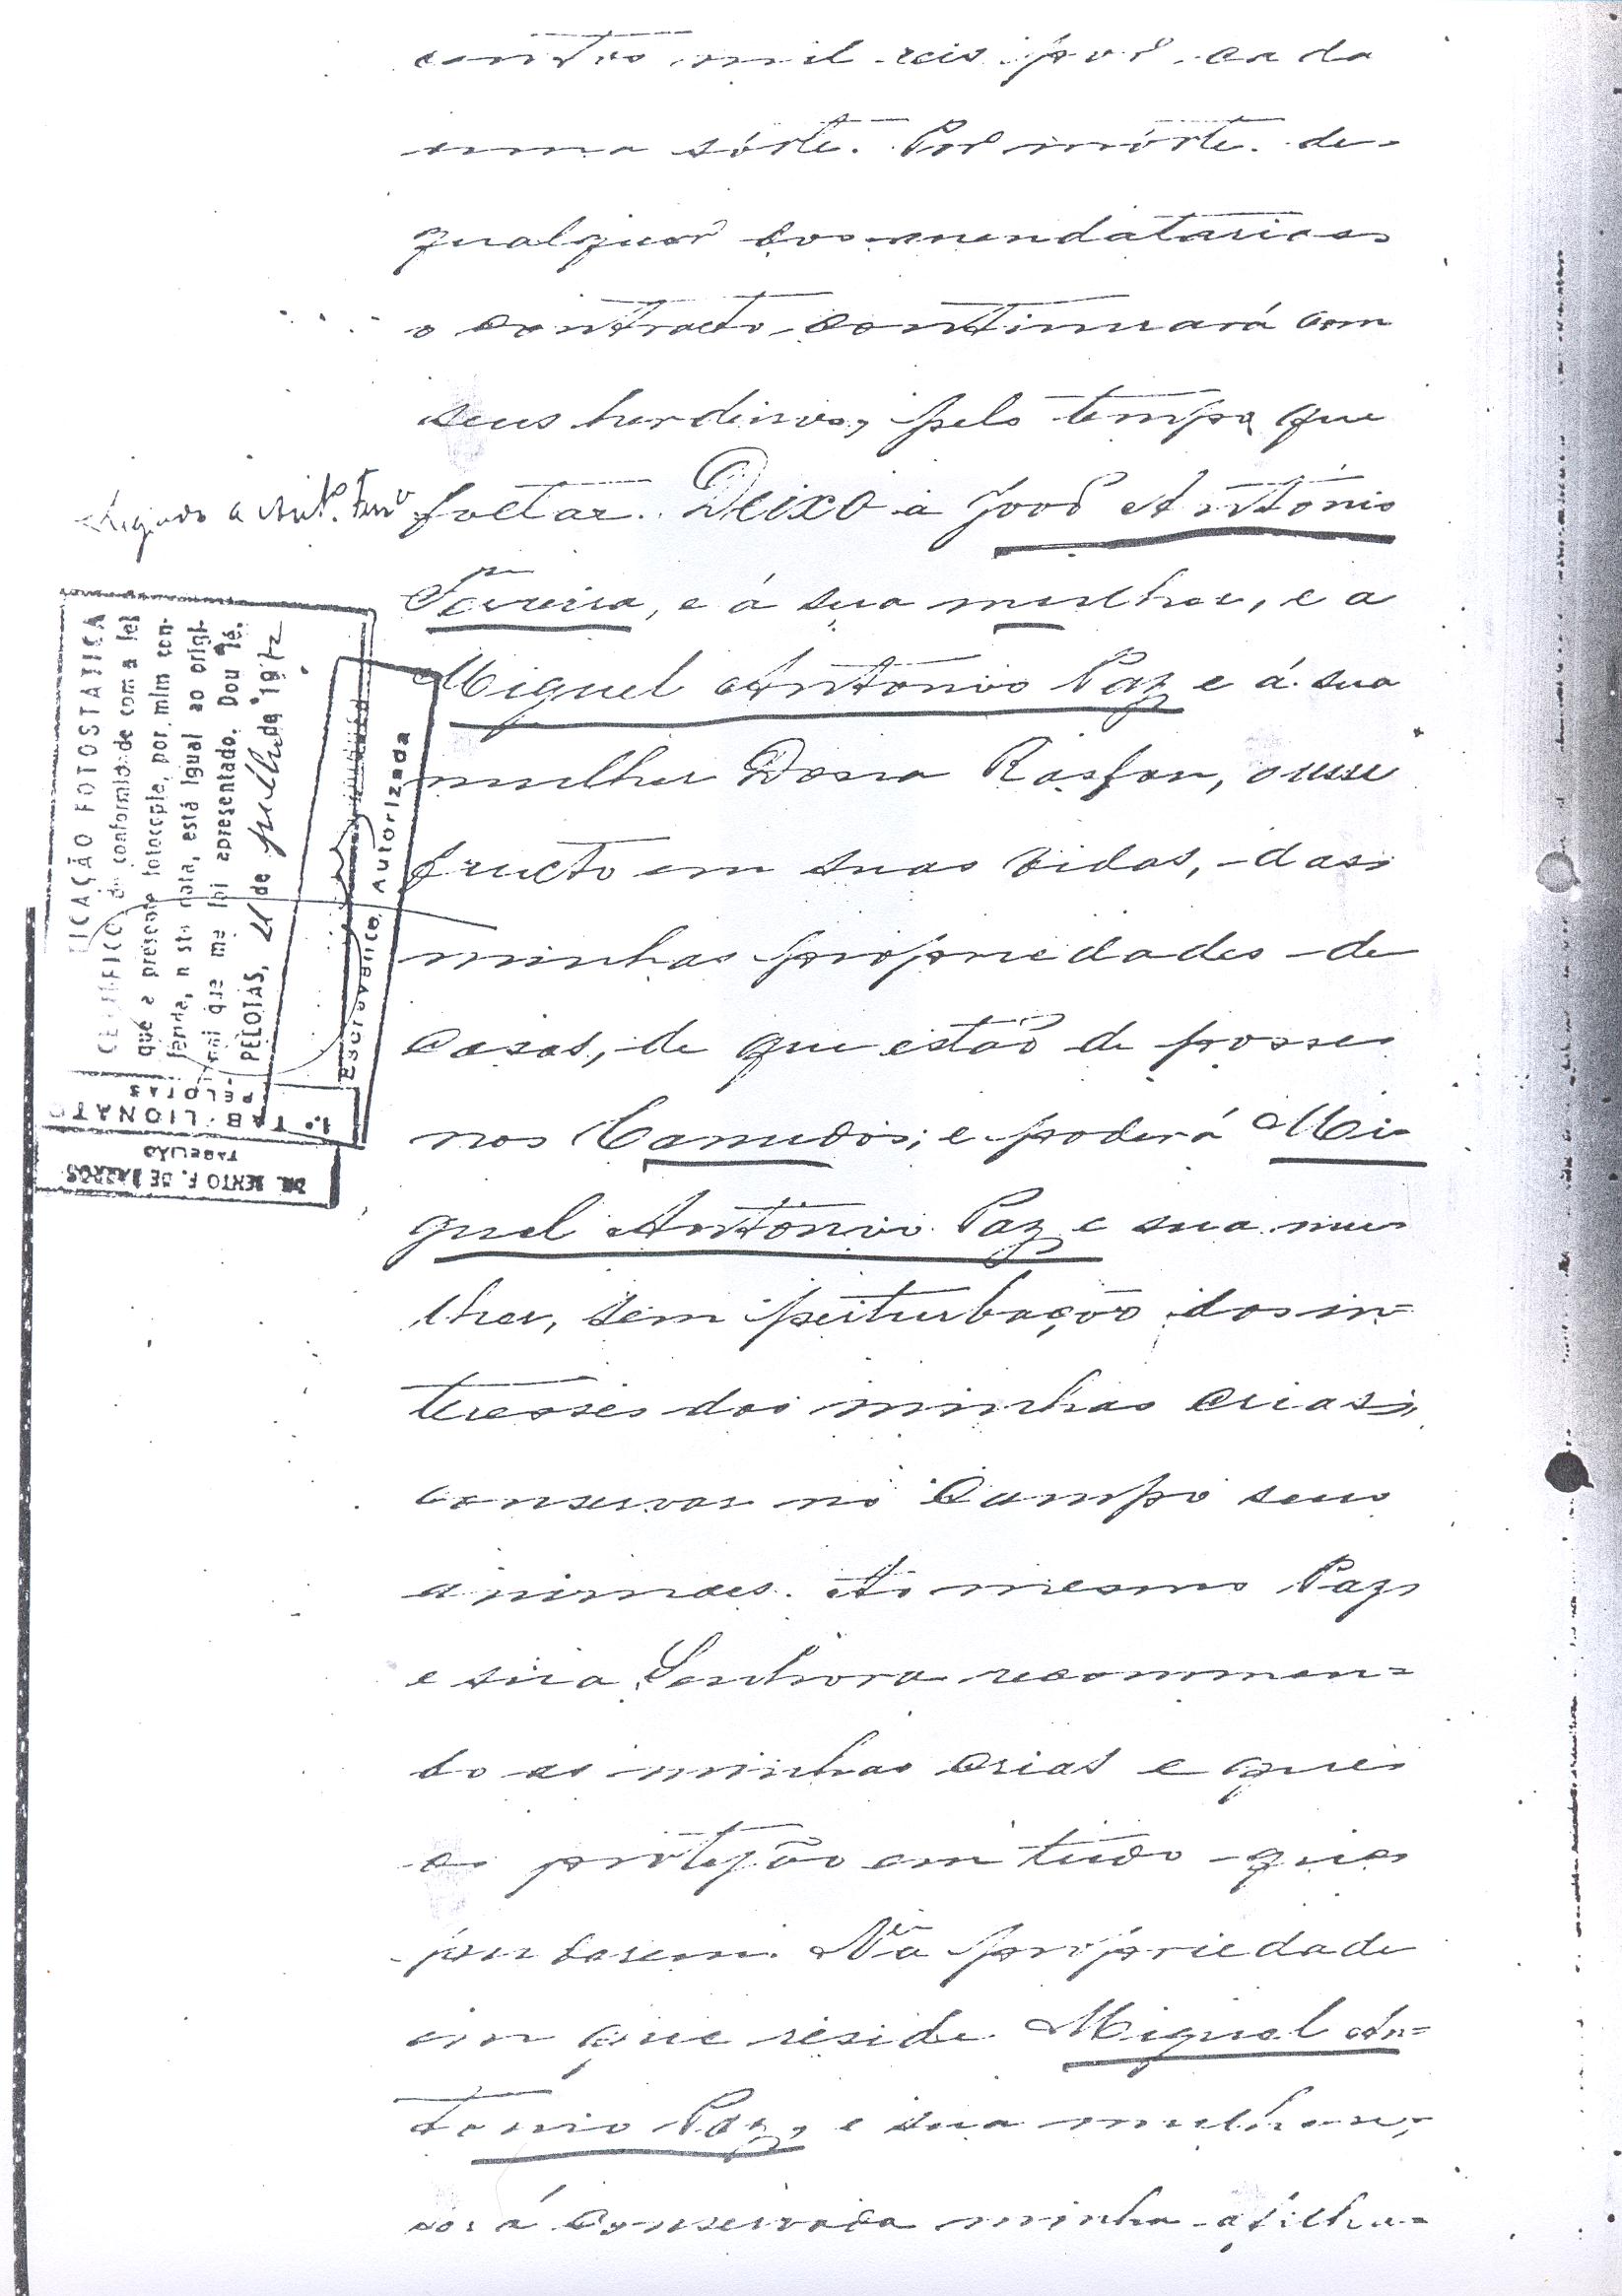 centos mil reis por cada
uma sórte. Por mórte de
qualquer dos mendatarios
o contracto continuará com
seus herdeiros, pelo tempo que
faltar. Deixo a João António
Ferreira, e á sua mulher, e a
Miguel António Paz e á sua
mulher Dona, o uso
fructo em suas vidas, das
minhas propriedades de
casas, de que estão de posse
nos Canudos; e poderá Mi-
guel António Paz e sua mu
lher, sem perturbação dos in=
teresses das minhas crias,
conservar no Campo seus
animaes. Ao mesmo Paz
e sua Senhora recommen=
do as minhas crias e que
as protejão em tudo que
puderem. Na propriedade
em que reside Miguel An=
tonio Paz, e sua mulher,
será conservada minha afilha=
FICAÇÃO FOTOSTATICA
CERTIFICO, de conformidade com a lei
que a presente fotocopia, por mim con-
ferida, nesta data, está igual ao origi-
nal que me foi apresentado. Dou fé.
PELOTAS, 21 de julho de 1972
Escrevente Autorizada
1.º TABELIONATO
PELOTAS
DR. BENTO F. DE BARROS
TABELIÃO